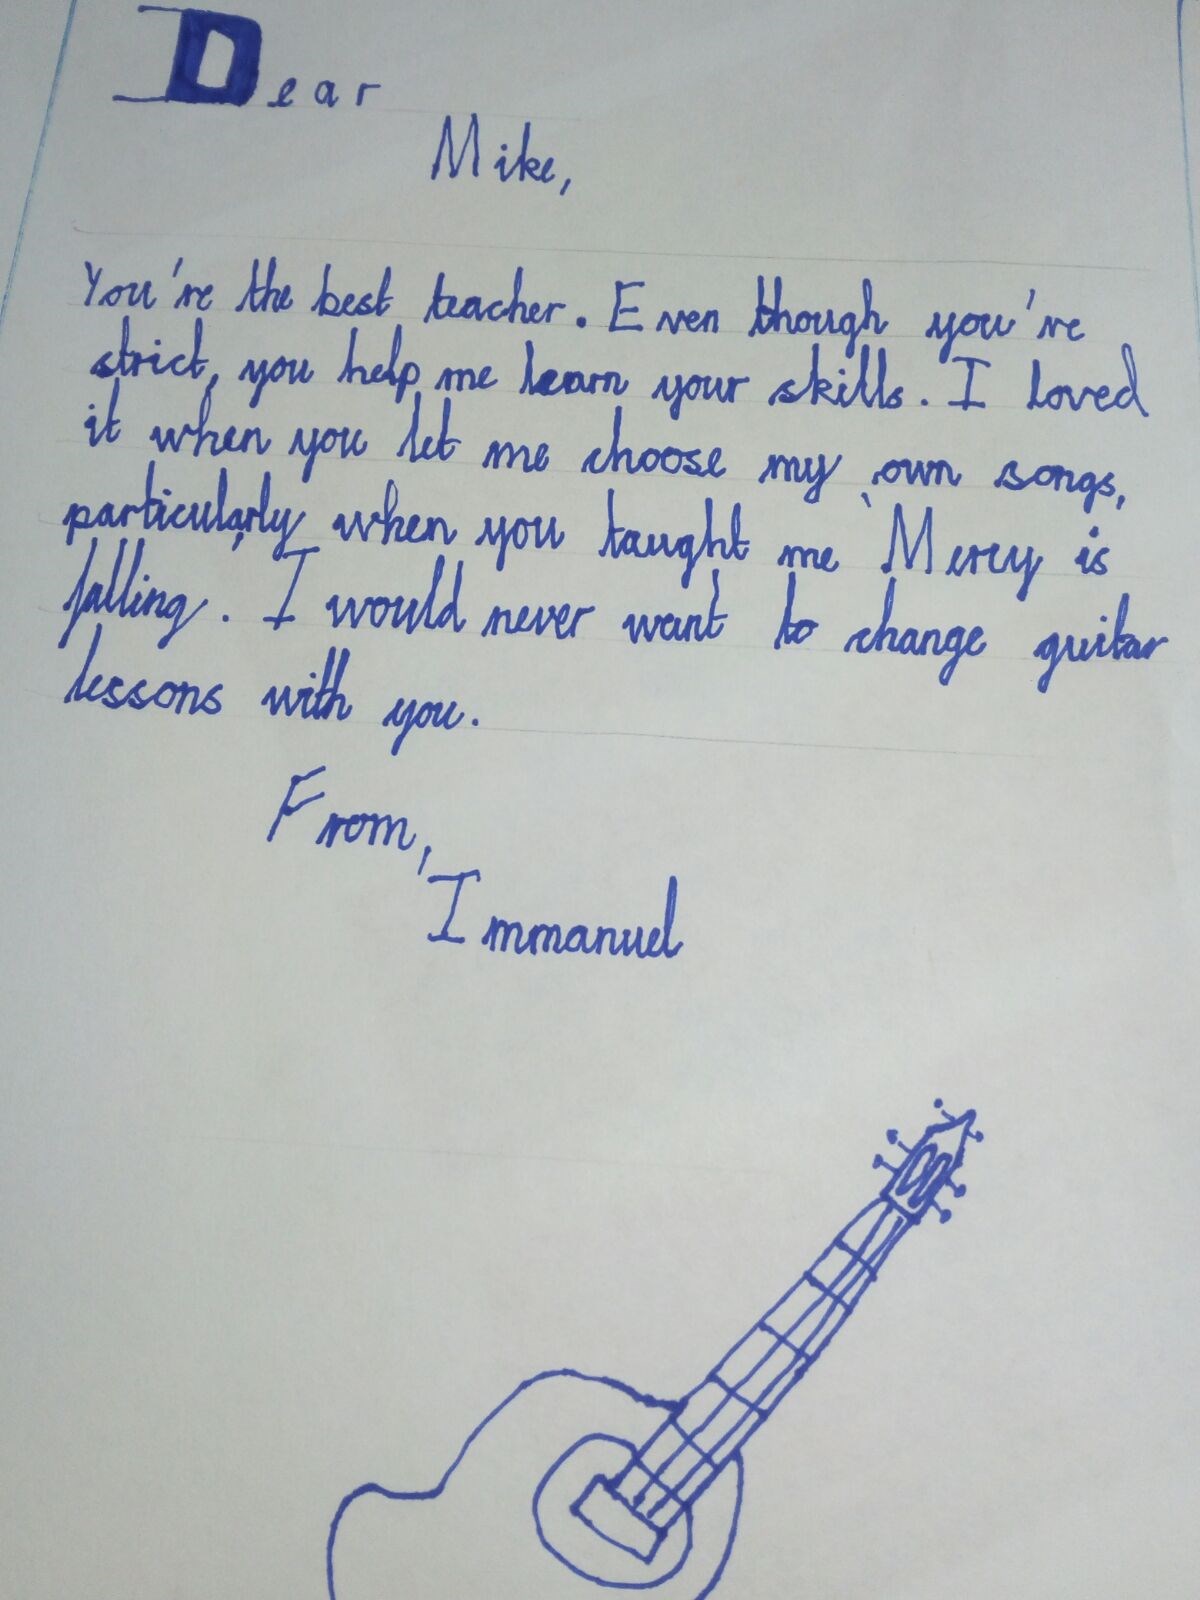 Dear
Mike,
You're the best teacher. Even though you're
strict, you help me learn your skills. I loved
it when you let me choose my own songs,
particularly when you taught me 'Mercy is
falling'. I would never want to change guitar
lessons with you.
From,
Immanuel